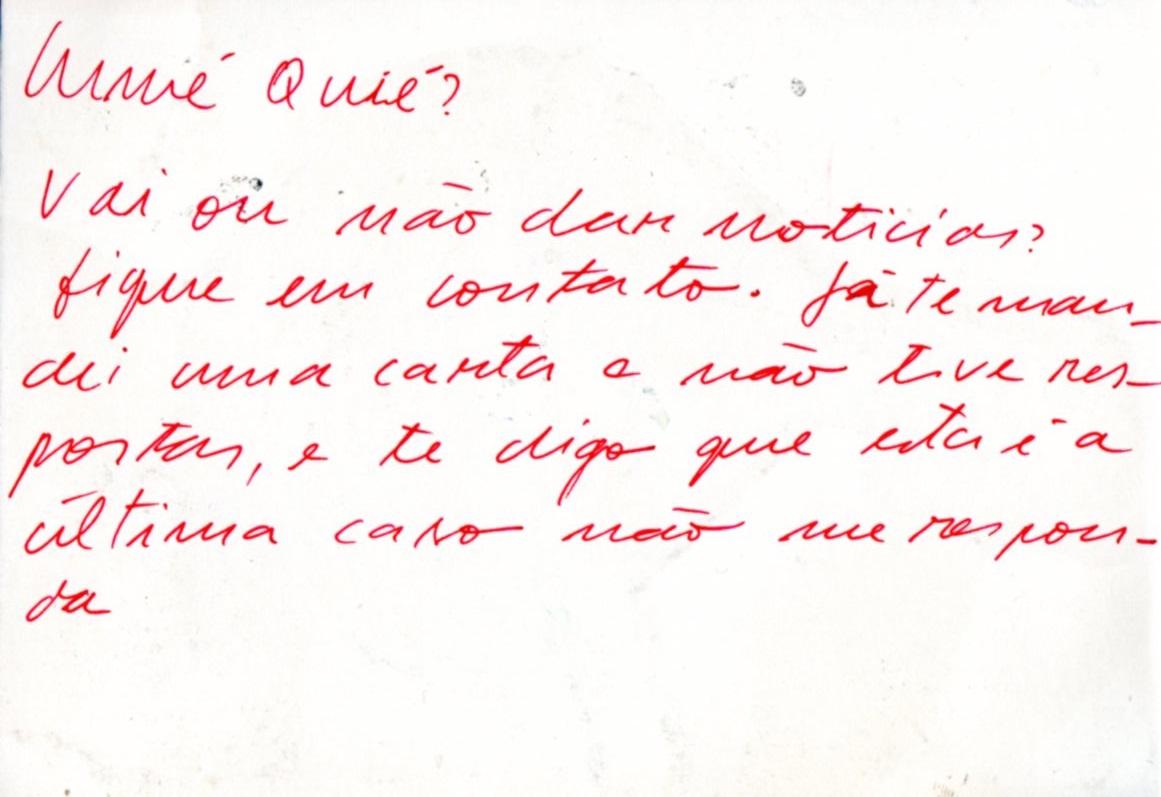 Quié?
Vai ou não dar noticias?
fique em contato. Já te man-
dei uma carta e não tive res-
postas, e te digo que esta é a
última caso não me respon-
da